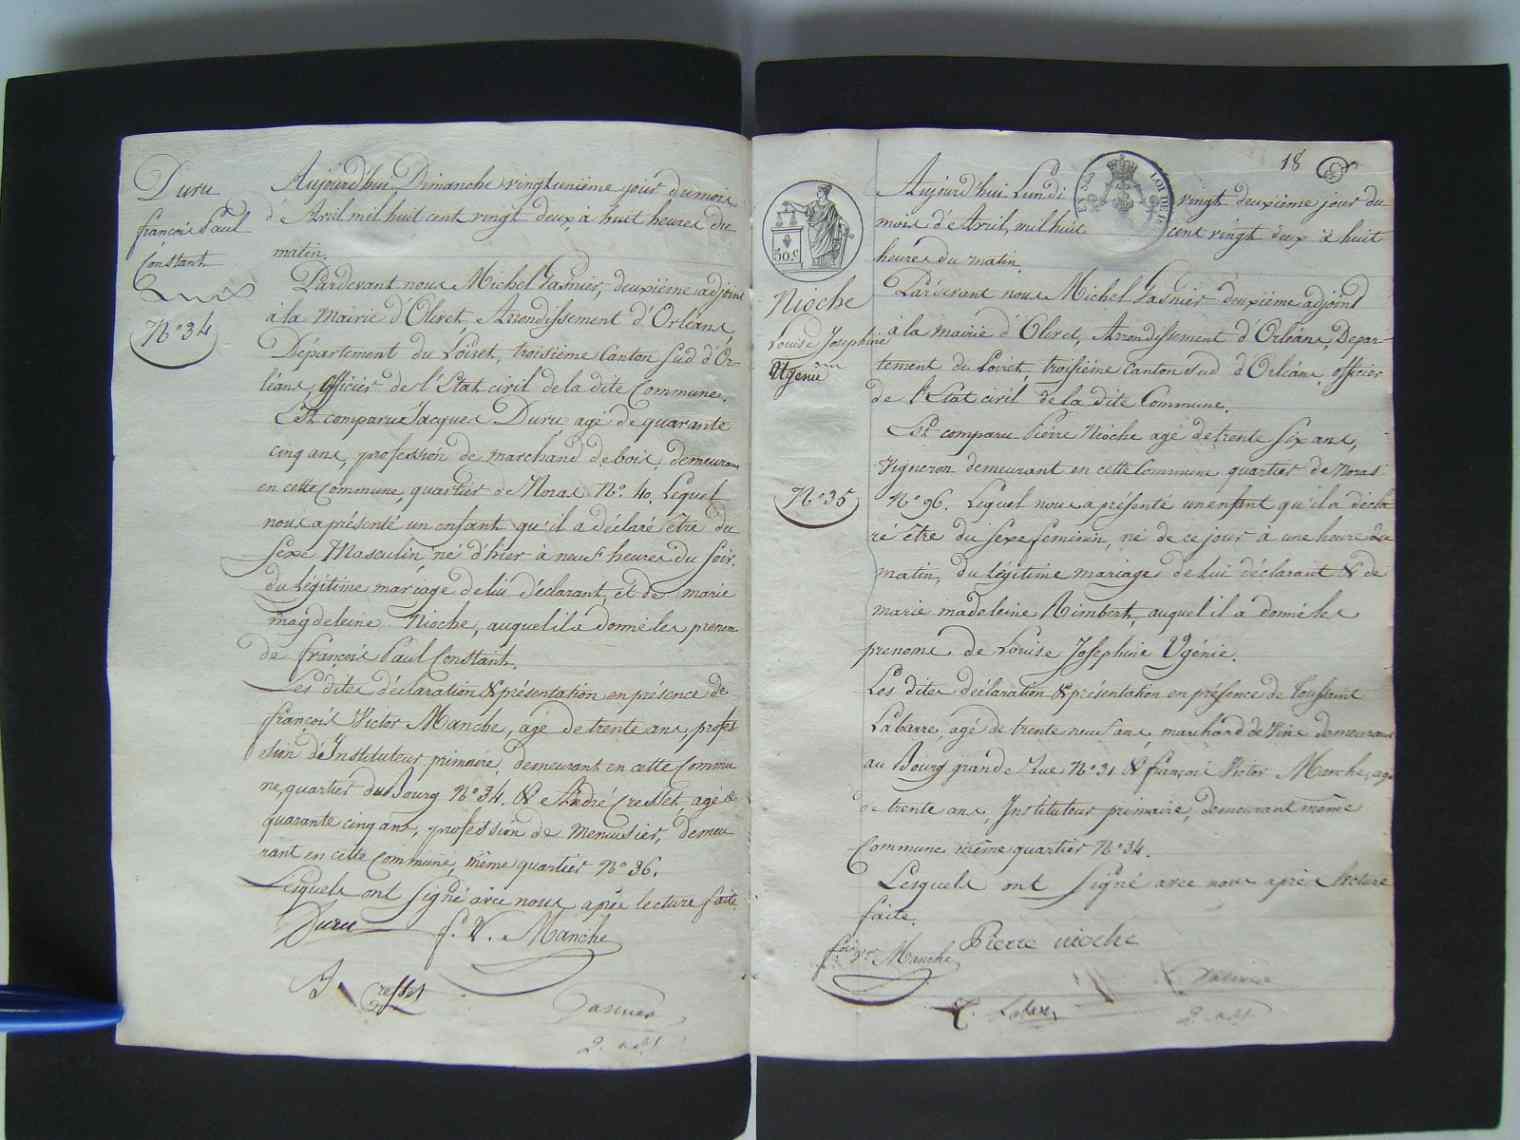 Duru
françois Paul
Constant
N° 34
Aujourd'hui Dimanche vingtunième jour du mois
d'Avril mil huit cent vingt deux, à huit heures du
matin.
Pardevant nous Michel Gasnier, deuxième adjoint
à la Mairie d'Olivet, Arrondissement d'Orléans,
Département du Loiret, troisième Canton Sud d'Or-
léans, Officier de l'Etat civil de la dite Commune.
Est comparu Jacques Duru agé de quarante
cinq ans, profession de marchand de bois, demeurant
en cette Commune, quartier de Noras N° 40. Lequel
nous a présenté un enfant qu'il a déclaré être du
sexe Masculin né d'hier à neuf heures du soir,
du légitime mariage de lui déclarant, et de marie
magdeleine Nioche, auquel il a donné les prenoms
de françois Paul Constant.
Les dites déclaration & présentation en présence de
françois Victor Manche, agé de trente ans, profes
sion d'Instituteur primaire, demeurant en cette Commu
ne, quartier du Bourg N° 34. & André Cresset, agé de
quarante cinq ans, profession de Menuisier, demeu
rant en cette Commune, même quartier N° 36.
Lesquels ont Signé avec nous après lecture faite.
Duru
f. V. Manche
Cresset
Gasnier
2. adj.
18
50 c
LOI DE
Nioche
Louise Josephine
Ugenie
N° 35
Aujourd'hui Lundi vingt deuxième jour du
mois d'Avril, mil huit cent vingt deux à huit
heures du matin.
Pardevant nous Michel Gasnier deuxième adjoint
à la mairie d'Olivet, Arrondissement d'Orléans, Depar-
tement du Loiret, troisième Canton sud d'Orléans, officier
de l'Etat civil de la dite Commune.
Est comparu Pierre Nioche agé de trente six ans,
Vigneron demeurant en cette Commune quartier de Noras
N° 96. Lequel nous a présenté un enfant qu'il a décla
ré être du sexe feminin, né de ce jour à une heure du
matin, du légitime mariage de lui déclarant & de
marie madeleine Rimbert, auquel il a donné les
prenoms de Louise Josephine Ugénie.
Les dites déclaration & présentation en présence de Toussaint
Labarre, agé de trente neuf ans, marchand de Vins demeurant
au Bourg grande Rue N° 31 & françois Victor Manche, agé
de trente ans, Instituteur primaire, demeurant même
Commune même quartier N° 34.
Lesquels ont Signé avec nous après lecture
faite.
Manche
Pierre nioche
Gasnier
T. Labare
2. adj.